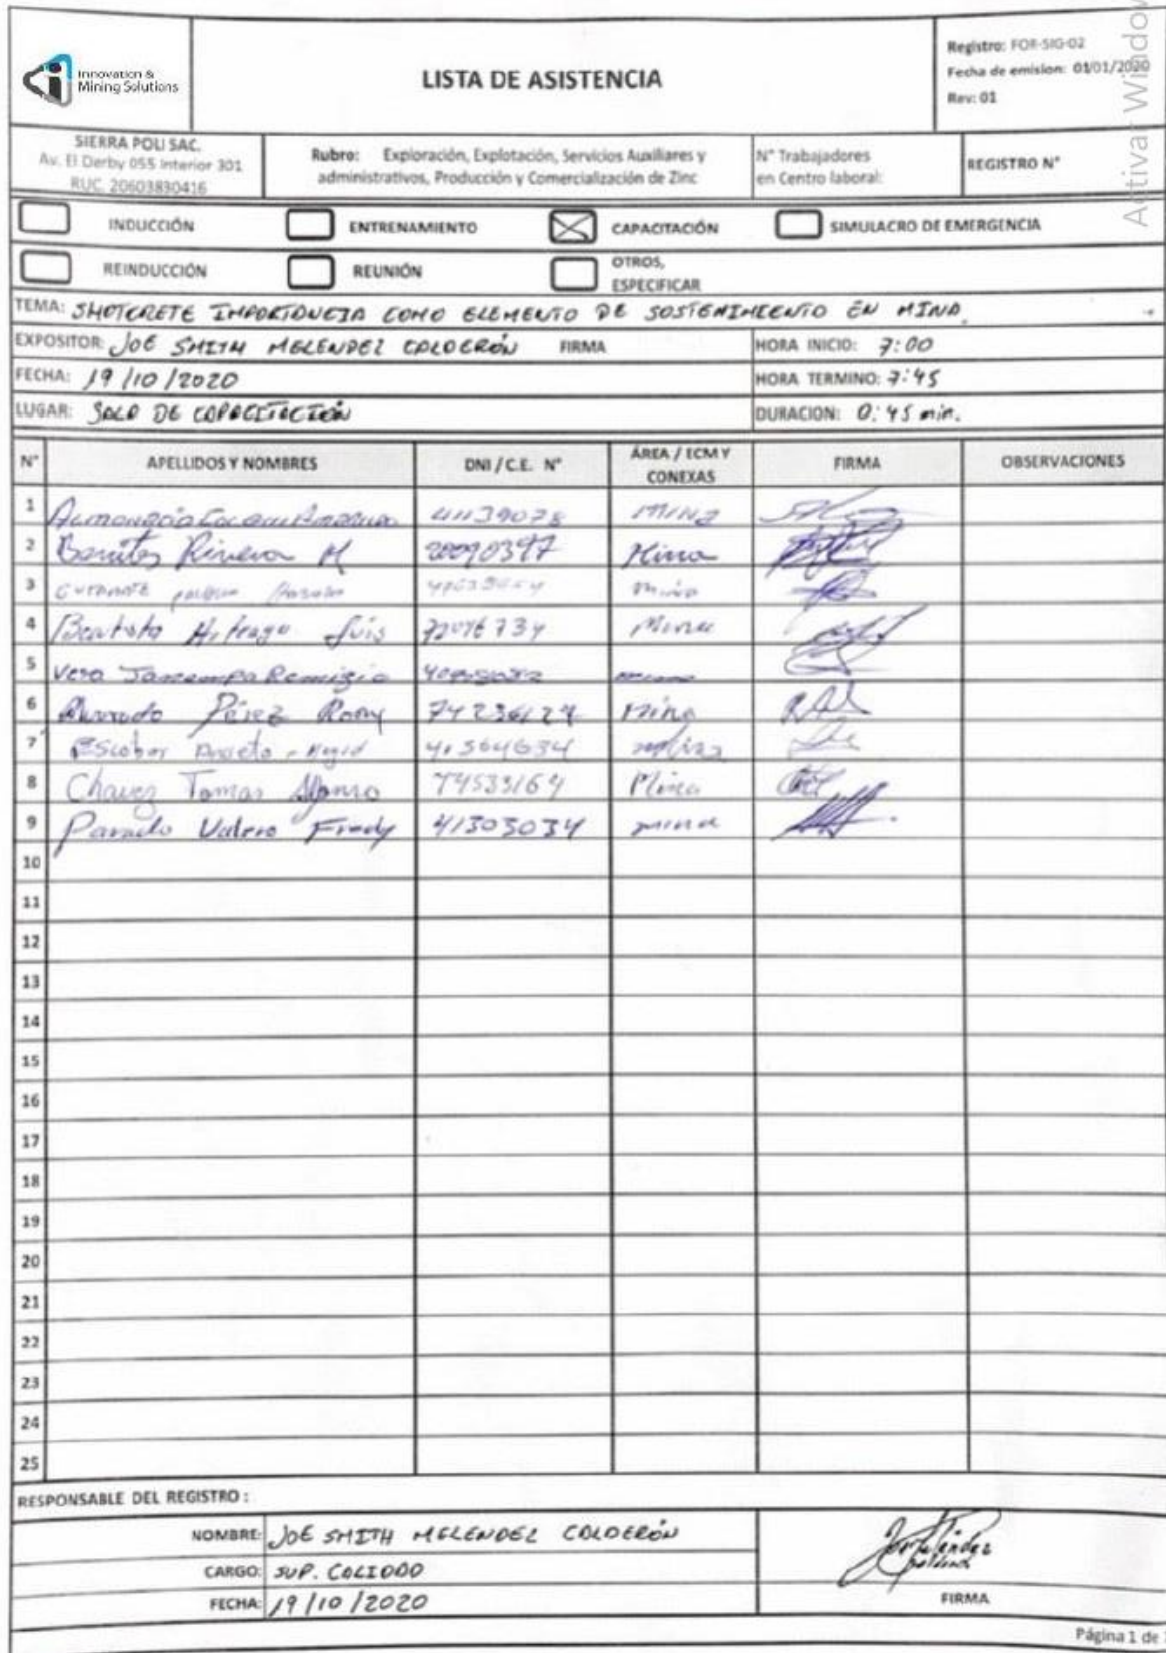 Innovation &
Mining Solutions
LISTA DE ASISTENCIA
Registro: FOR-SIG-02
Fecha de emision: 01/01/2020
Rev: 01
Activar Window
SIERRA POLI SAC.
Av. El Derby 055 Interior 301
RUC. 20603830416
Rubro: Exploración, Explotación, Servicios Auxiliares y
administrativos, Producción y Comercialización de Zinc
N° Trabajadores
en Centro laboral:
REGISTRO N°
INDUCCIÓN ENTRENAMIENTO CAPACITACIÓN SIMULACRO DE EMERGENCIA
REINDUCCIÓN REUNIÓN OTROS,
ESPECIFICAR
TEMA: SHOTCRETE IMPORTANCIA COMO ELEMENTO DE SOSTENIMIENTO EN MINA.
EXPOSITOR: JOE SMITH MELENDEZ CALDERÓN FIRMA HORA INICIO: 7:00
FECHA: 19/10/2020 HORA TERMINO: 7:45
LUGAR: SALA DE CAPACITACIÓN DURACION: 0:45 min.
N° APELLIDOS Y NOMBRES DNI / C.E. N° ÁREA / ECM Y
CONEXAS FIRMA OBSERVACIONES
1 41139078 MINA
2 Benites Rivera M 20090397 Mina
3 mina
4 Luis 72076734 Mina
5 Vera Remigio
6 Pérez Romy 74236129 Mina
7 Escobar 41564634
8 Chavez Tomas Alonso 74533164 Mina
9 Valero Fredy 41303034 mina
10
11
12
13
14
15
16
17
18
19
20
21
22
23
24
25
RESPONSABLE DEL REGISTRO :
NOMBRE: JOE SMITH MELENDEZ CALDERÓN
CARGO: SUP. CALIDAD
FECHA: 19/10/2020
FIRMA
Página 1 de